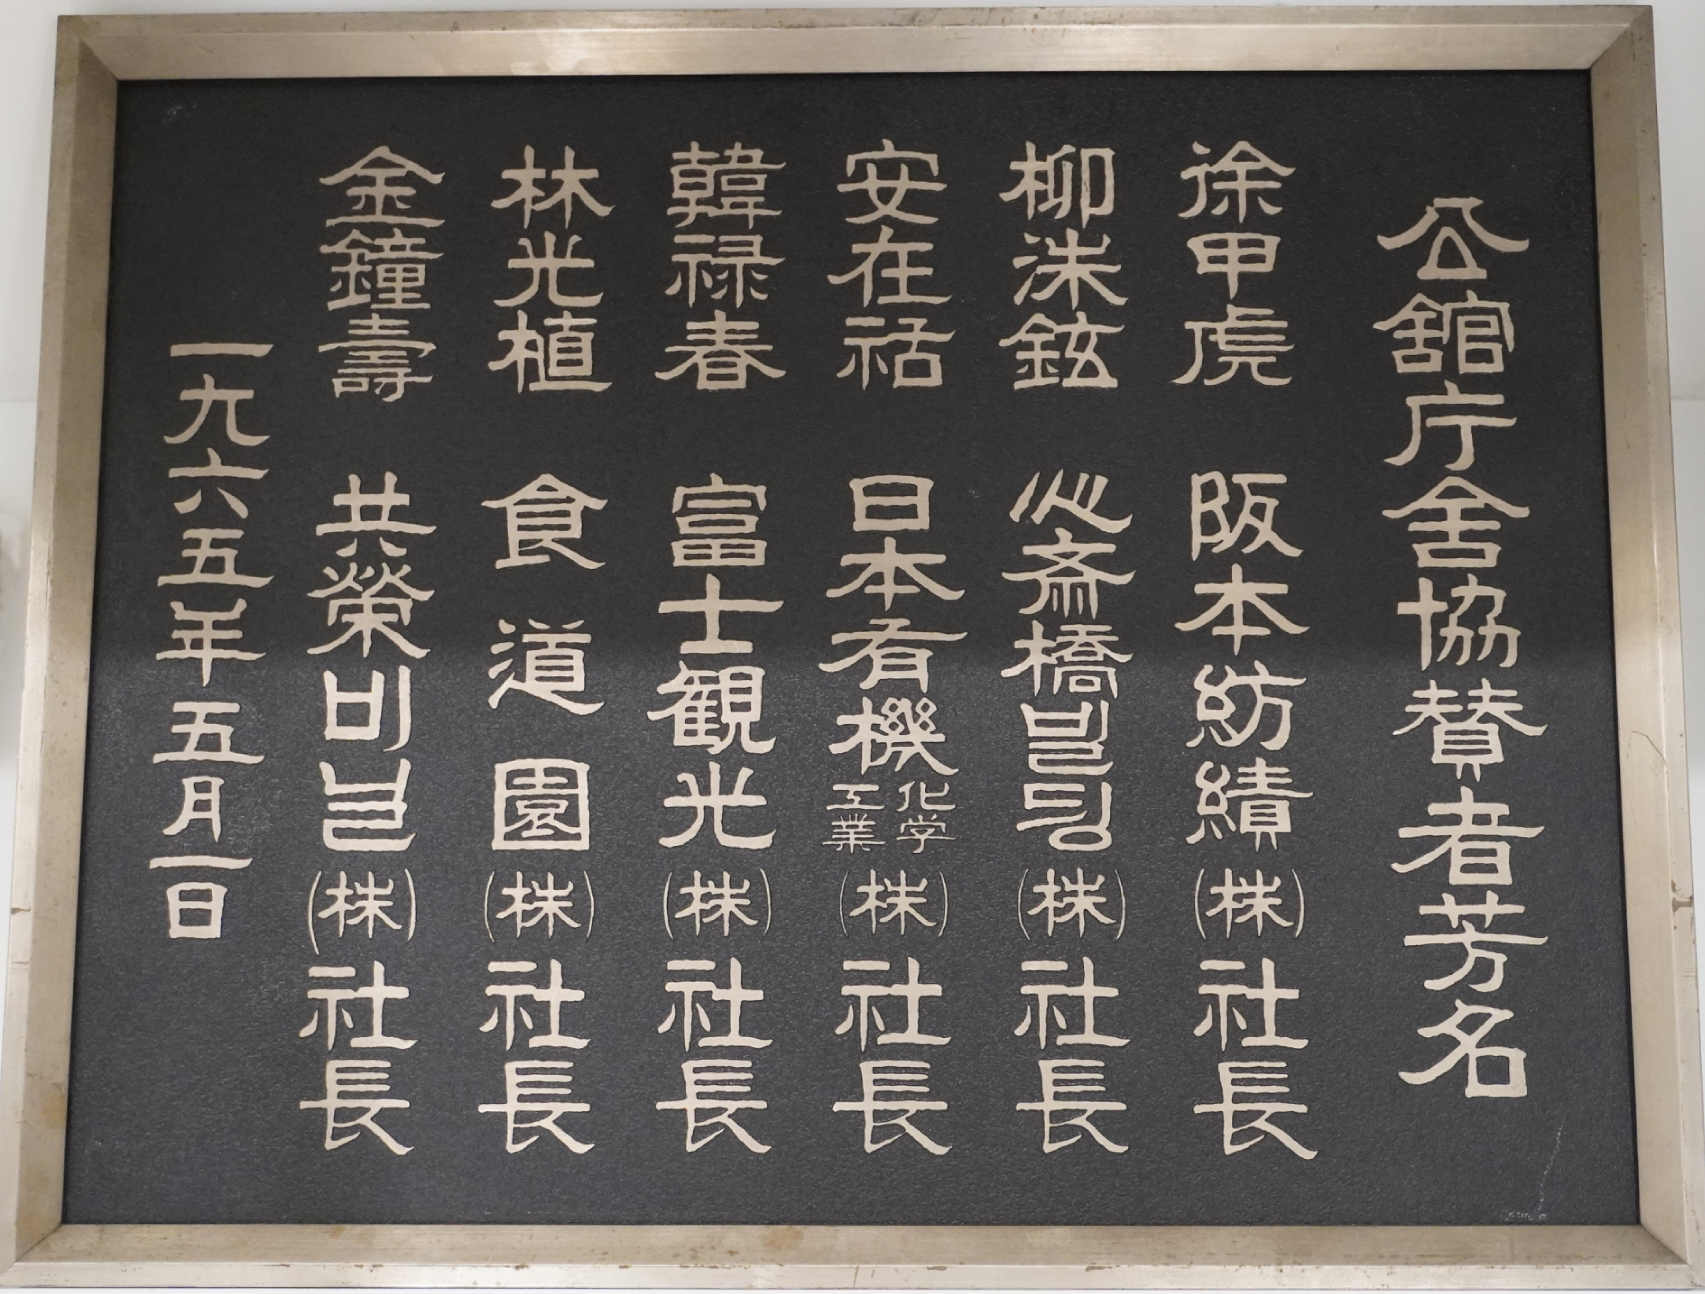 公舘庁舍協賛者芳名
徐甲虎 阪本紡績(株)社長
柳洙鉉 心斎橋빌딩(株)社長
安在祜 日本有機化学工業(株)社長
韓禄春 富士観光(株)社長
林光植 食道園(株)社長
金鐘壽 共榮비닐(株)社長
一九六五年五月一日